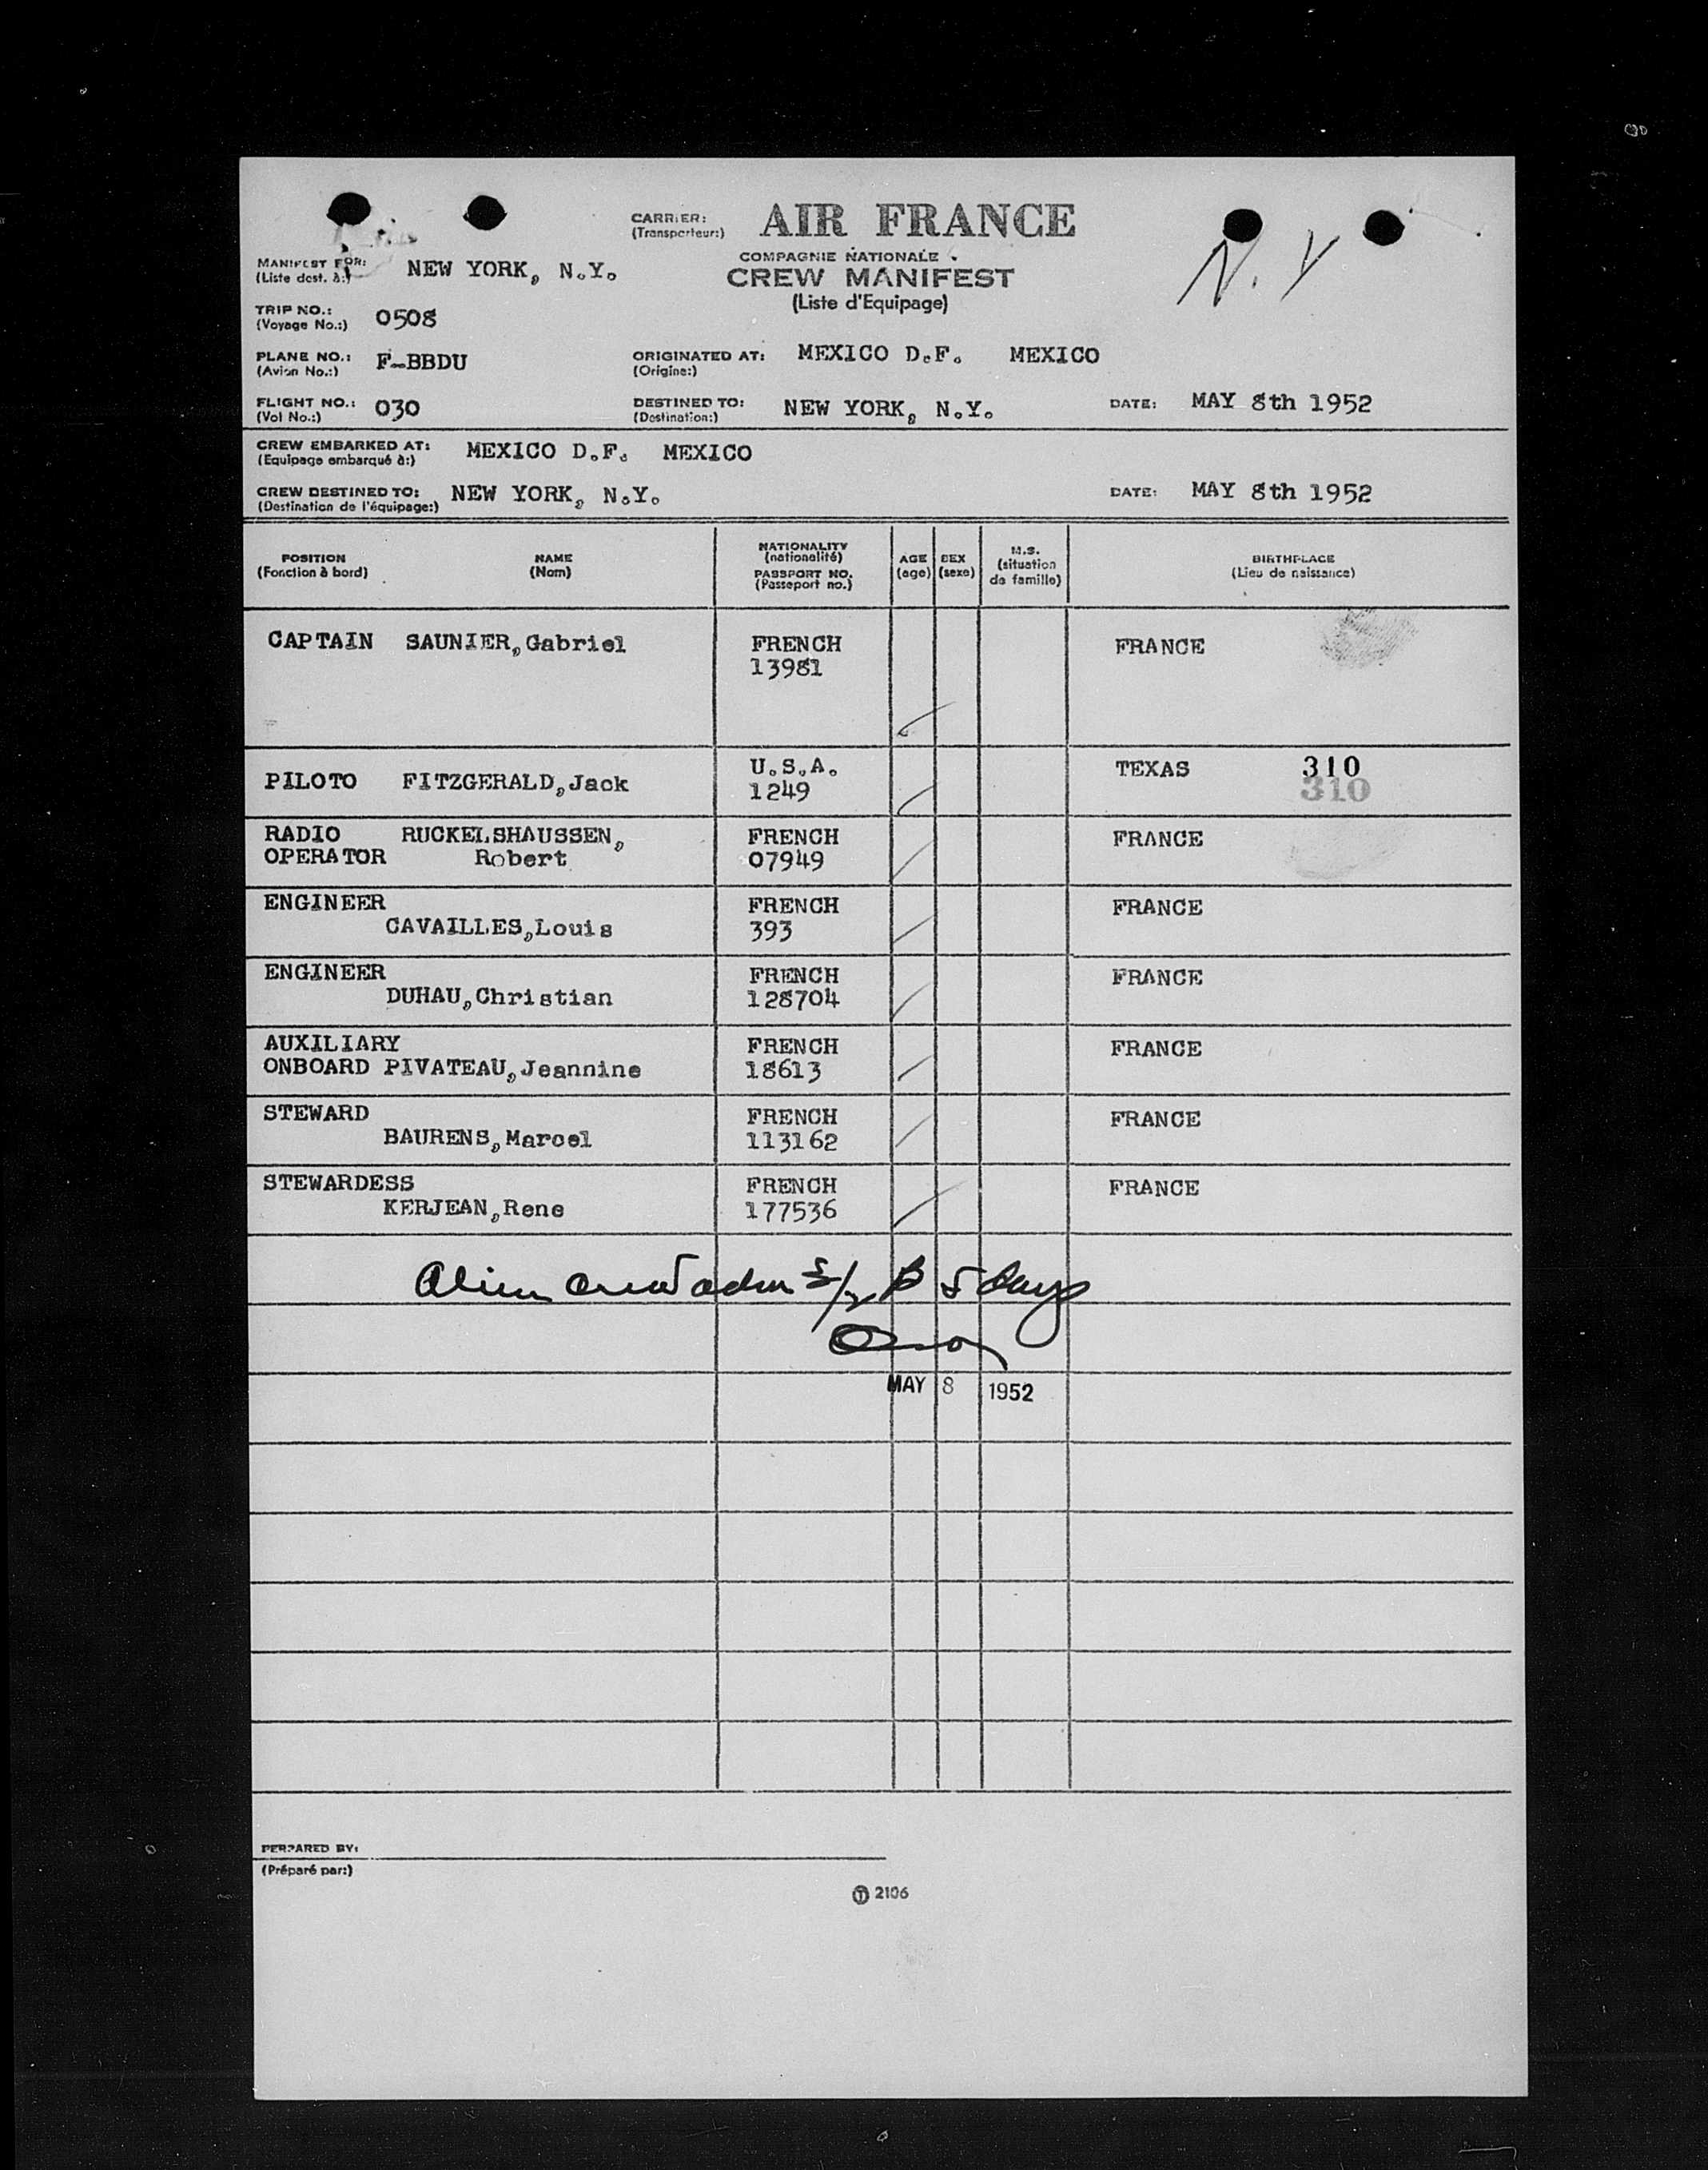 CARRIER: AIR FRANCE
(Transporteur:)
COMPAGNIE NATIONALE
CREW MANIFEST
(Liste d'Equipage)
N.Y
MANIFEST FOR: NEW YORK, N.Y.
(Liste dest. à:)
TRIP NO.: 0508
(Voyage No.:)
PLANE NO.: F-BBDU ORIGINATED AT: MEXICO D.F. MEXICO
(Avion No.:) (Origine:)
FLIGHT NO.: 030 DESTINED TO: NEW YORK, N.Y. DATE: MAY 8th 1952
(Vol No.:) (Destination:)
CREW EMBARKED AT: MEXICO D.F. MEXICO
(Equipage embarqué à:)
CREW DESTINED TO: NEW YORK, N.Y. DATE: MAY 8th 1952
(Destination de l'équipage:)
POSITION NAME NATIONALITY AGE SEX M.S. BIRTHPLACE
(Fonction à bord) (Nom) (nationalité) (age) (sexe) (situation de famille) (Lieu de naissance)
PASSPORT NO.
(Passeport no.)
CAPTAIN SAUNIER, Gabriel FRENCH FRANCE
13981
PILOTO FITZGERALD, Jack U.S.A. TEXAS 310
1249 310
RADIO RUCKELSHAUSSEN, FRENCH FRANCE
OPERATOR Robert 07949
ENGINEER FRENCH FRANCE
CAVAILLES, Louis 393
ENGINEER FRENCH FRANCE
DUHAU, Christian 128704
AUXILIARY FRENCH FRANCE
ONBOARD PIVATEAU, Jeannine 18613
STEWARD FRENCH FRANCE
BAURENS, Marcel 113162
STEWARDESS FRENCH FRANCE
KERJEAN, Rene 177536
Alien crew 5 days
MAY 8 1952
PERPARED BY:
(Préparé par:)
2106